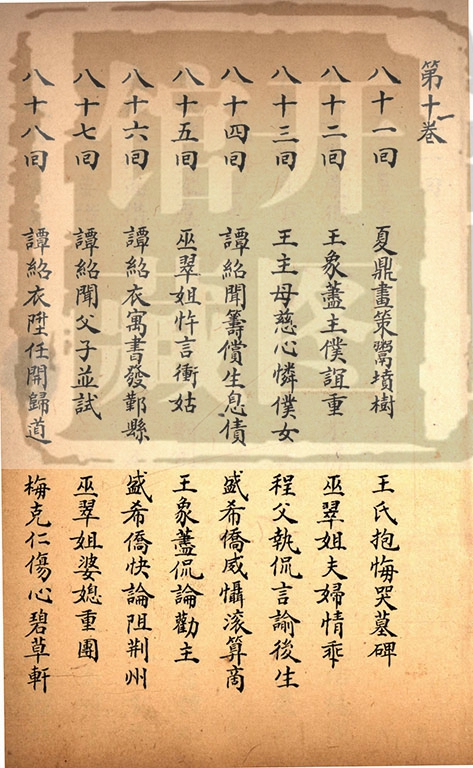 第十一卷
八十一回 夏鼎畫策鬻墳樹 王氏抱悔哭墓碑
八十二回 王象藎主僕誼重 巫翠姐夫婦情乖
八十三回 王主母慈心憐僕女 程父執侃言諭後生
八十四回 譚紹聞籌償生息債 盛希僑威懾滾算商
八十五回 巫翠姐忤言衝姑 王象藎侃論勸主
八十六回 譚紹衣寓書發鄞縣 盛希僑快論阻荆州
八十七回 譚紹聞父子並試 巫翠姐婆媳重團
八十八回 譚紹衣陞任開歸道 梅克仁傷心碧草軒